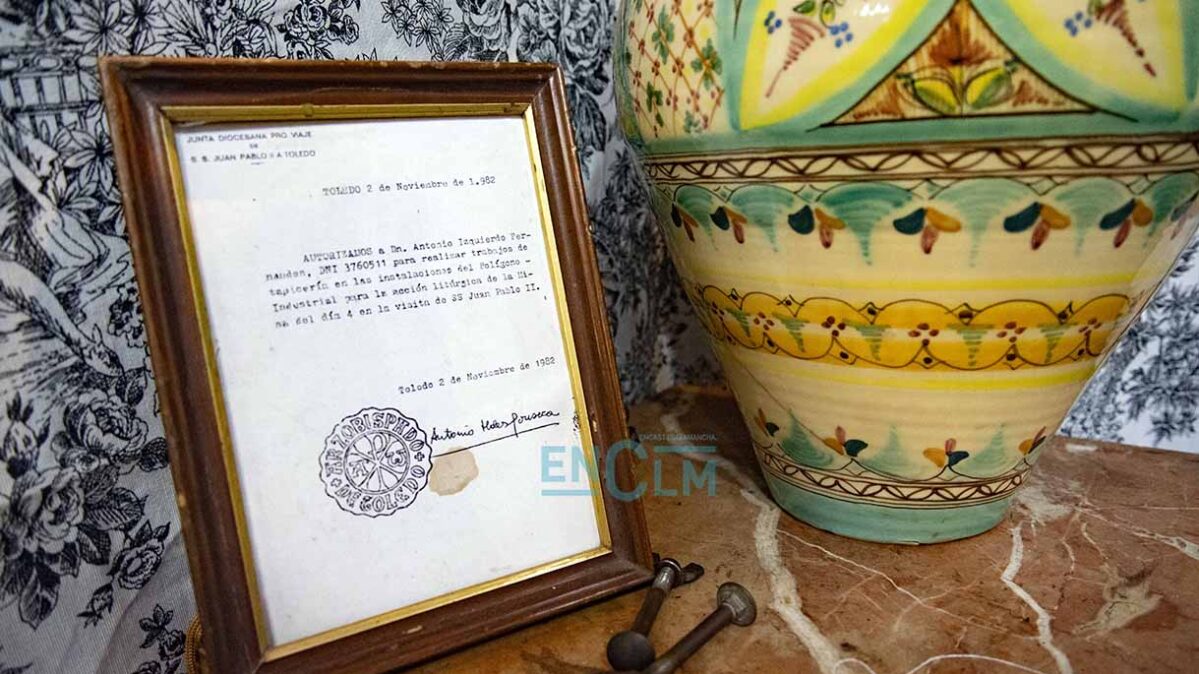 JUNTA DIOCESANA PRO VIAJE
DE
S. S. JUAN PABLO II A TOLEDO
TOLEDO 2 de Noviembre de 1.982
AUTORIZADOS a Dn. Antonio Izquierdo Fer-
nandez, DNI 3760511 para realizar trabajos de
tapicería en las instalaciones del Polígono -
Industrial para la acción litúrgica de la Mi-
sa del día 4 en la visita de SS Juan Pablo II.
Toledo 2 de Noviembre de 1982
Antonio
ARZOBISPADO
DE TOLEDO
ENCASTILLALAMANCHA.
ENCLM